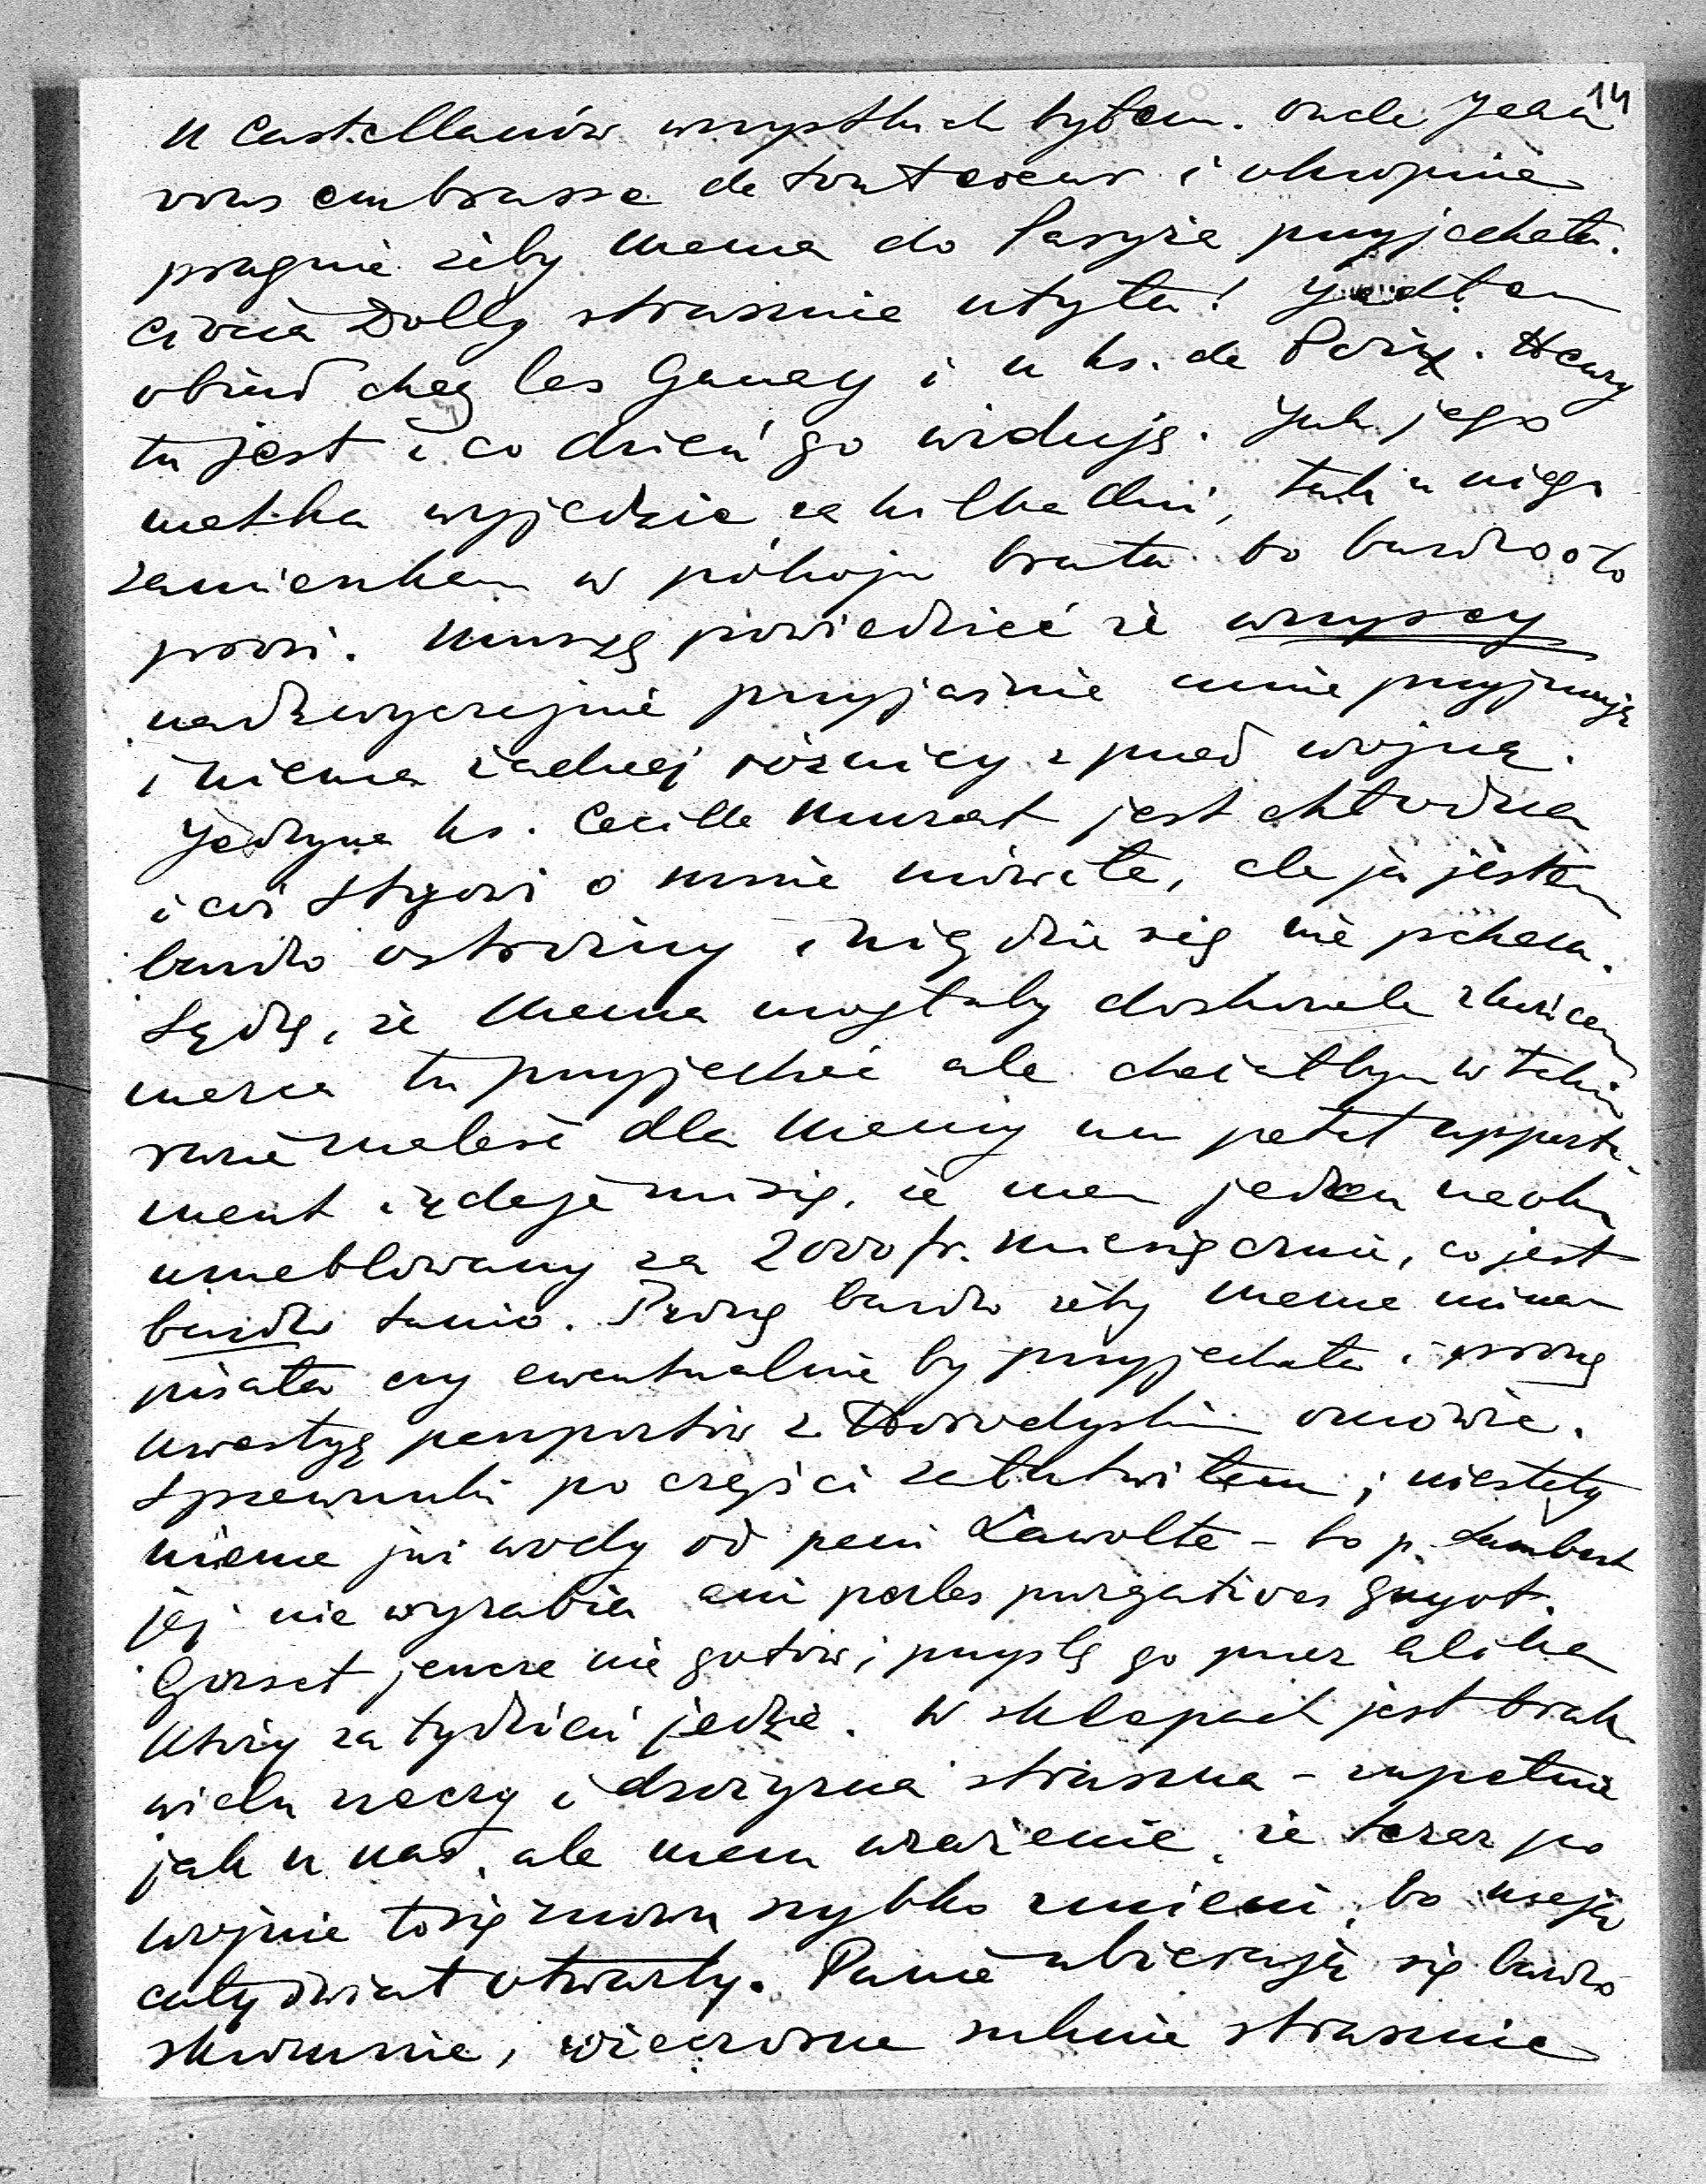 14
U Castellanów wszystkich byłem. Oncle Jean
vous embrasse de tout coeur i okropnie
pragnie żeby Mama do Paryża przyjechała.
Ciocia Dolly strasznie utyła! Jadłem
obiad chez les Ganay i u ks. de Poix. Henry
tu jest i co dzień go widuję. Jak jego
matka wyjedzie za kilka dni, tak u niego
zamieszkam w pokoju brata bo bardzo o to
prosi. Muszę powiedzieć że wszyscy
nadzwyczajnie przyjaźnie mnie przyjmują
i niema żadnej różnicy z przed wojną.
Jedyna ks. Cecille Murat jest chłodna
i coś Stysowi o mnie mówiła, ale ja jestem
bardzo ostrożny i nigdzie się nie pcham.
Sądzę, że Mama mogłaby doskonale z końcem
marca tu przyjechać ale chciałbym w takim
razie znaleść dla Mamy un petit apparte-
ment i zdaje mi się, że mam jeden na oku
umeblowany za 2000 fr. miesięcznie, co jest
bardzo tanio. Proszę bardzo żeby Mama mi zaraz
pisała czy ewentualnie by przyjechała i proszę
kwestyę paszportów z Horodyskim omówić.
Sprawunki po części załatwiłem; niestety
niema już wody od pani Lavolte – bo p. Lambert
jej nie wyrabia ani perles purgatives Guyot.
Gorset jeszcze nie gotów i przyślę go przez Alika
który za tydzień jedzie. W sklepach jest brak
wielu rzeczy i drożyzna straszna – zupełnie
jak u nas, ale mam wrażenie, że teraz po
wojnie to się znowu szybko zmieni, bo mają
cały świat otwarty. Panie ubierają się bardzo
skromnie, wieczorne suknie strasznie